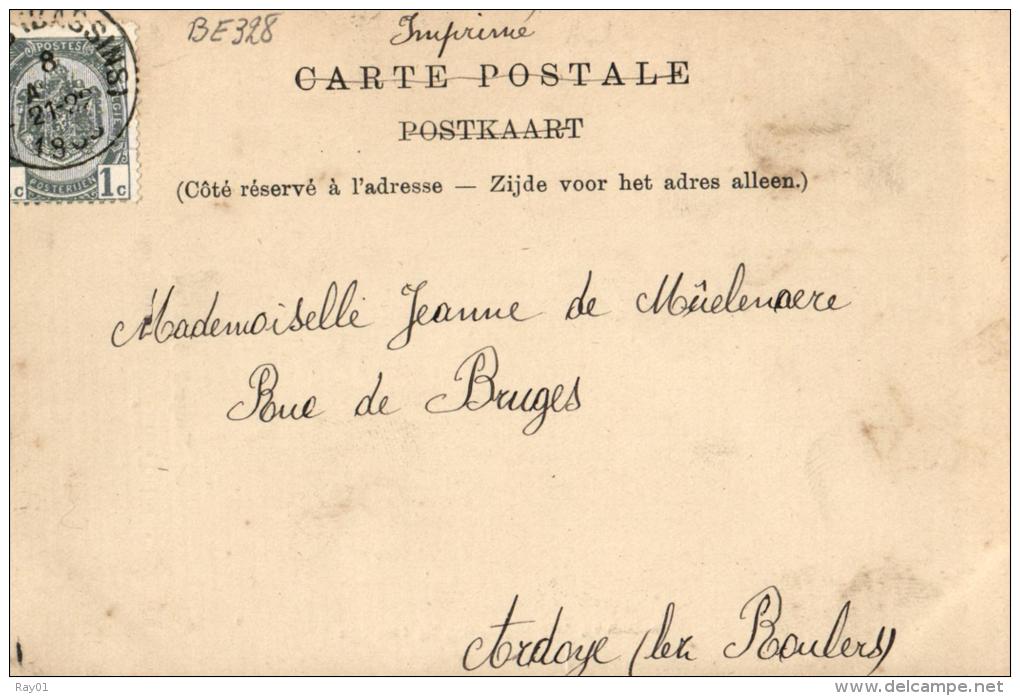 BE328
Imprimé
CARTE POSTALE
POSTKAART
(Côté réservé à l'adresse — Zijde voor het adres alleen.)
BASSINS)
POSTES
8
21-22
POSTERIJEN
1c
Mademoiselle Jeanne de Mûelenaere
Rue de Bruges
Ardoye (lez Roulers)
Ray01
delcampe.net